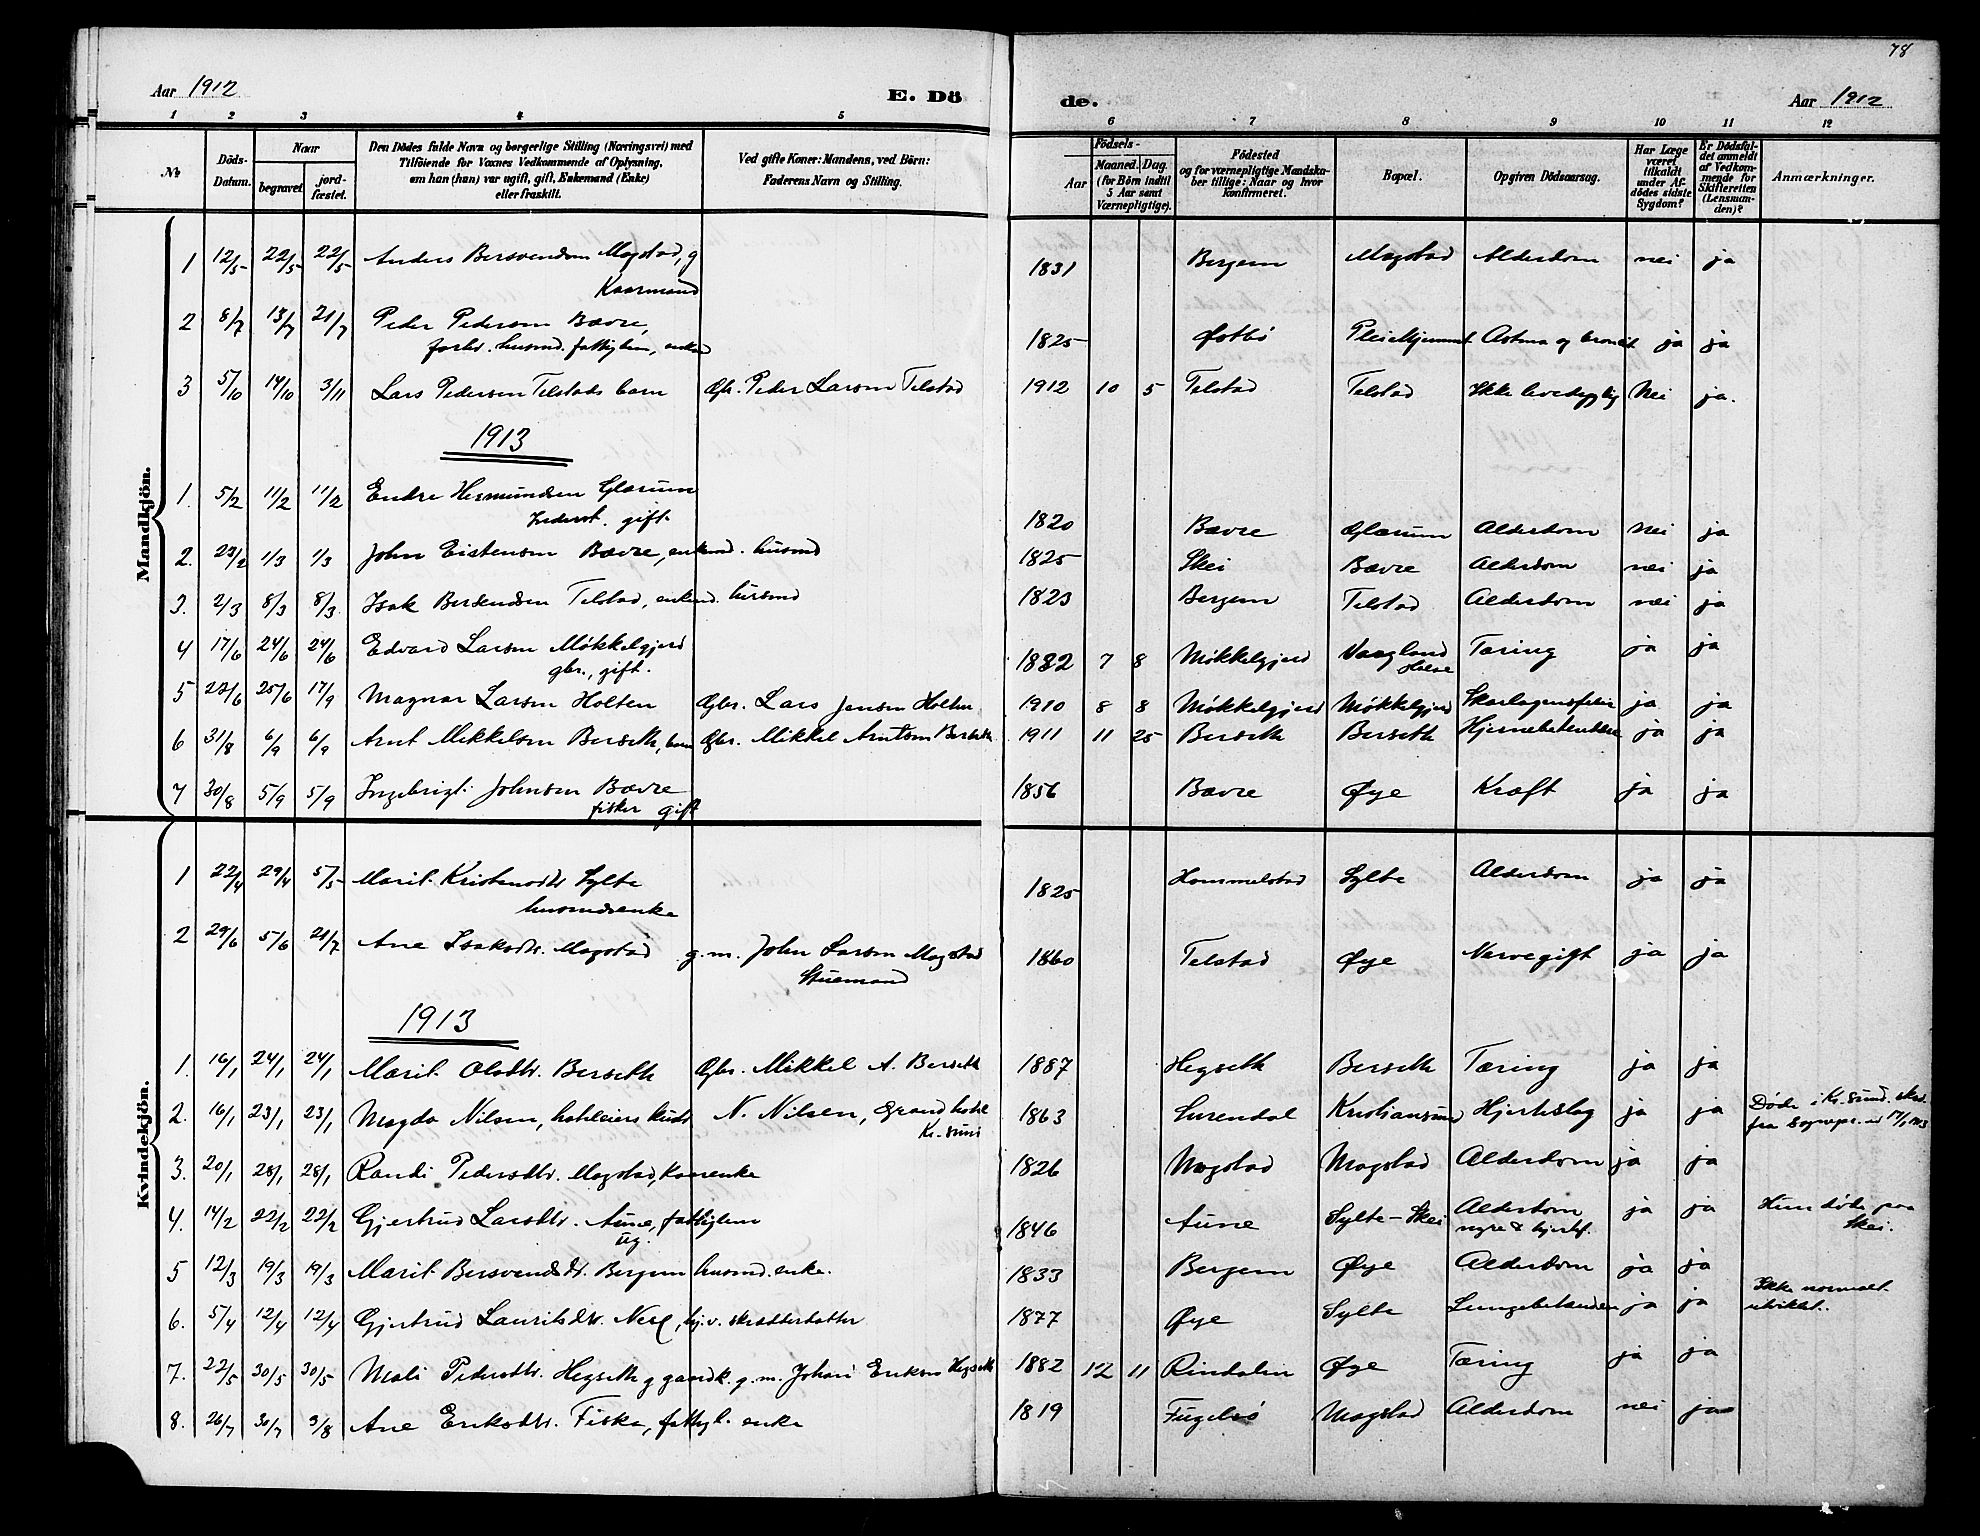 78
Aar 1912
E. Dö
de.
Aar 1912
1 2 3 4 5 6 7 8 9 10 11 12
№
Döds-Datum.
Naar
begravet
jord-fæstet.
Den Dödes fulde Navn og borgerlige Stilling (Næringsvei) med
Tilföiende for Voxnes Vedkommende af Oplysning,
om han (hun) var ugift, gift, Enkemand (Enke)
eller fraskilt.
Ved gifte Koner: Mandens, ved Börn:
Faderens Navn og Stilling.
Födsels-
Aar
Maaned. Dag.
(for Börn indtil
5 Aar samt
Værnepligtige).
Födested
og for værnepligtige Mandska-
ber tillige: Naar og hvor
konfirmeret.
Bopæl.
Opgiven Dödsaarsag.
Har Læge
været
tilkaldt
under Af-
dödes sidste
Sygdom?
Er Dödsfal-
det anmeldt
af Vedkom-
mende for
Skifteretten
(Lensman-
den)?
Anmærkninger.
Mandkjön.
1 12/5 22/5 22/5 Anders Bersvendsen Mogstad, g 1831 Bergem Mogstad Alderdom nei ja
Kaarmand
2 8/7 13/7 21/7 Peder Pedersen Bævre, 1825 Østbø Pleiehjemmet Astma og bronkit ja ja
forhv. husmd. fattiglem, enkem
3 5/10 14/10 3/11 Lars Pedersen Telstads barn Gbr. Peder Larsen Telstad 1912 10 5 Telstad Telstad Ikke levedygtig Nei ja.
1913
1. 5/2 11/2 11/2 Endre Hermundsen Glærum 1820 Bævre Glærum Alderdom nei ja
Føderaad. gift.
2. 23/2 1/3 1/3 John Eistensen Bævre, enkmd. husmd 1825 Skei Bævre Alderdom nei ja
3. 2/3 8/3 8/3 Isak Bersendsen Telstad, enkmd. husmd 1823 Bergem Telstad Alderdom nei ja
4 17/6 24/6 24/6 Edvard Larsen Møkkelgjerd 1882 7 8 Møkkelgjerd Vaagland Halse Tæring ja ja
gbr., gift.
5 22/6 25/6 17/9 Magnar Larsen Holten Gbr. Lars Jensen Holten 1910 8 8 Møkkelgjerd Møkkelgjerd Skarlagensfeber ja ja
6 31/8 6/9 6/9 Arnt Mikkelsen Berseth, barn Gbr. Mikkel Arntsen Berseth 1911 11 25 Berseth Berseth Hjernebetændelse ja ja
7 30/8 5/9 5/9 Ingebrigt Johnsen Bævre 1856 Bævre Øye Kræft ja ja
fisker gift
Kvindekjön.
1 22/4 29/4 5/5 Marit Kristensdtr Sylte 1825 Hommelstad Sylte Alderdom ja ja
husmdsenke
2 29/6 5/6 21/7 Ane Isaksdtr. Mogstad g.m. John Larsen Mogstad 1860 Telstad Øye Nervegift ja ja
Stuemand
1913
1. 16/1 24/1 24/1 Marit Olsdtr. Berseth Gbr. Mikkel A. Berseth 1887 Hegseth Berseth Tæring ja ja
2. 16/1 23/1 23/1 Magda Nilsen, hoteleiers hustr N. Nilsen, Grand hotel 1863 Surendal Kristiansund Hjerteslag ja ja Døde i Kr.sund.
Kr.sund
3. 20/1 28/1 28/1 Randi Pedersdtr. Mogstad, Kaarenke 1826 Mogstad Mogstad Alderdom ja ja
4. 14/2 22/2 22/2 Gjertrud Larsdtr. Aune, fattiglem 1846 Aune Sylte-Skei Alderdom ja ja Hun døde paa Skei.
ug. nyre & hjertef.
5 12/3 19/3 19/3 Marit Bersvendsdtr. Bergem husmd. enke. 1833 Bergem Øye Alderdom ja ja
6. 5/4 12/4 12/4 Gjertrud Lauritsdtr. Nese, hj.v. skrædderdatter 1877 Øye Sylte Lungebetænden ja ja Ikke normalt utviklet.
7. 22/5 30/5 30/5 Mali Pedersdtr. Hegseth g gaardk. g.m. Johan Eriksen Hegseth 1882 12 11 Rindalen Øye Tæring ja ja
8. 26/7 30/7 3/8 Ane Eriksdtr. Fiska, fattigl. enke 1819 Fugelsø Mogstad Alderdom nei ja